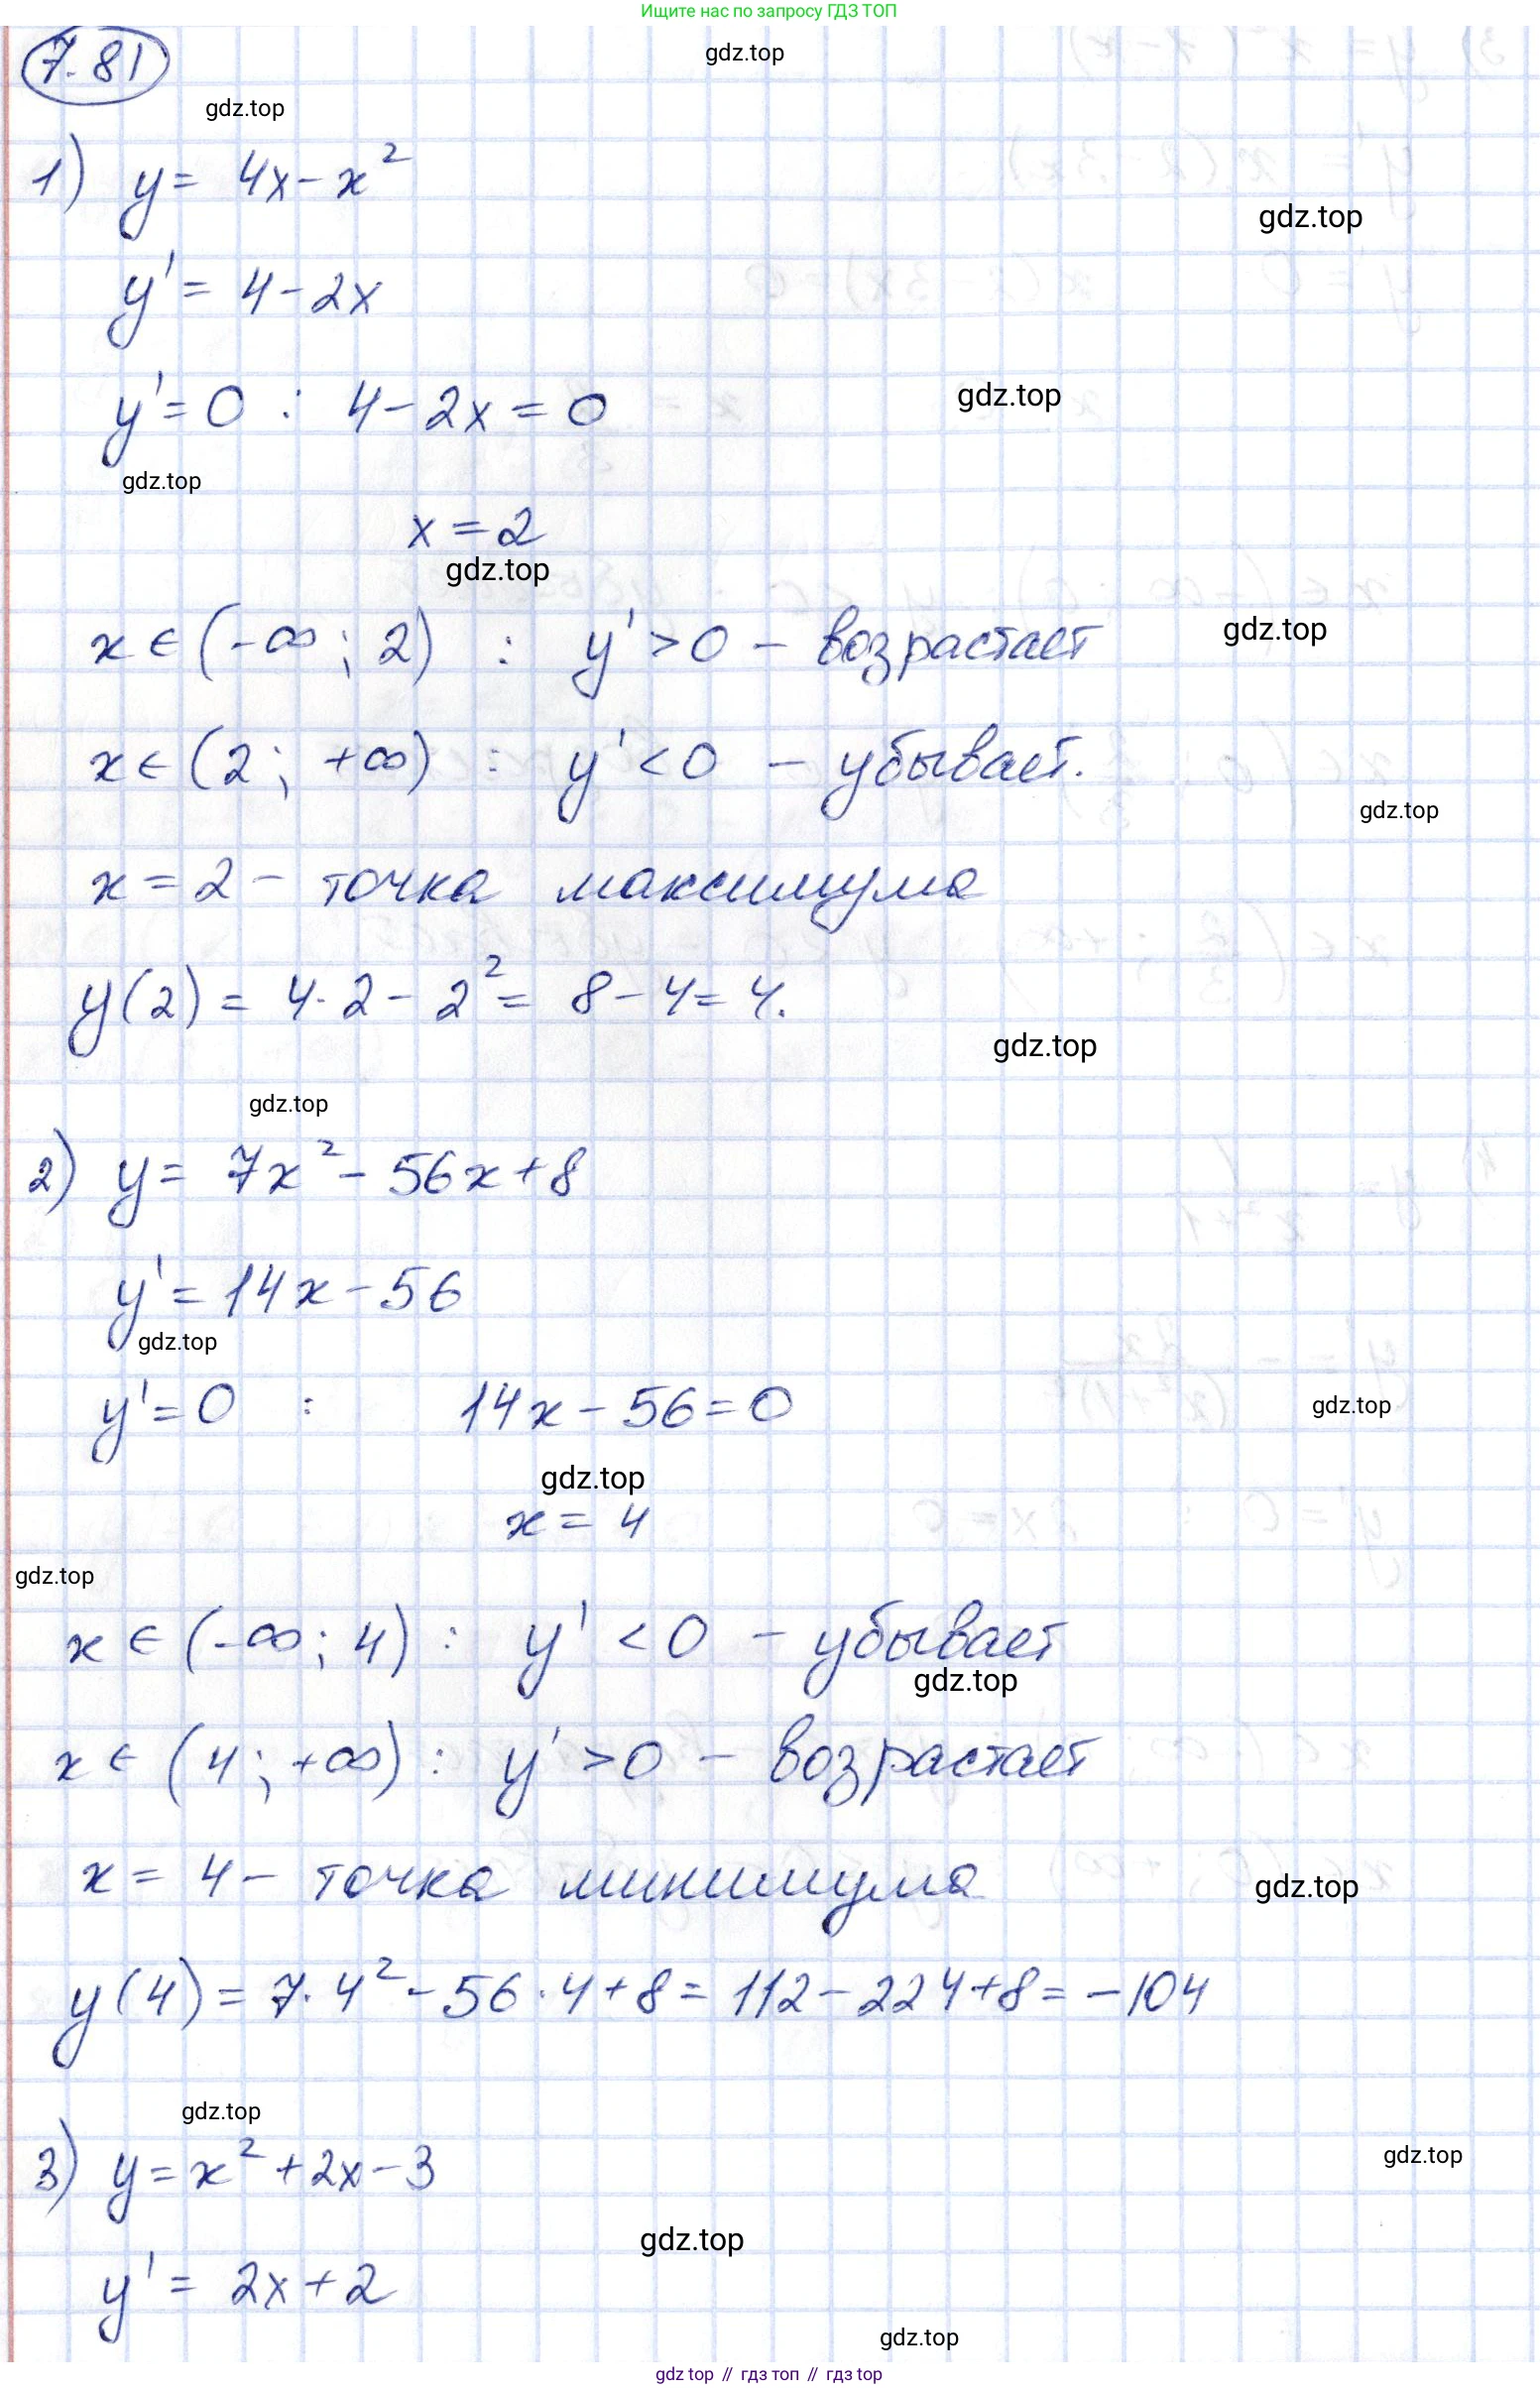 Ищите нас по запросу ГДЗ ТОП
7.81
gdz.top
gdz.top
1) y = 4x - x²
gdz.top
y' = 4 - 2x
y' = 0 : 4 - 2x = 0
gdz.top
gdz.top
x = 2
gdz.top
x ∈ (-∞; 2) : y' > 0 - возрастает
gdz.top
x ∈ (2; +∞) : y' < 0 - убывает.
gdz.top
x = 2 - точка максимума
y(2) = 4·2 - 2² = 8 - 4 = 4.
gdz.top
gdz.top
2) y = 7x² - 56x + 8
y' = 14x - 56
gdz.top
y' = 0 : 14x - 56 = 0
gdz.top
gdz.top
x = 4
gdz.top
x ∈ (-∞; 4) : y' < 0 - убывает
gdz.top
x ∈ (4; +∞) : y' > 0 - возрастает
x = 4 - точка минимума
gdz.top
y(4) = 7·4² - 56·4 + 8 = 112 - 224 + 8 = -104
gdz.top
3) y = x² + 2x - 3
gdz.top
gdz.top
y' = 2x + 2
gdz.top
gdz top // гдз топ // гдз top